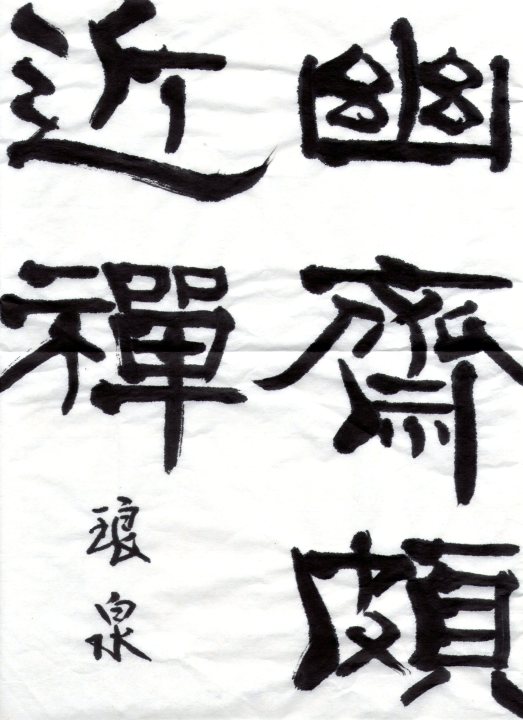 幽齋頗
近禪
琅泉